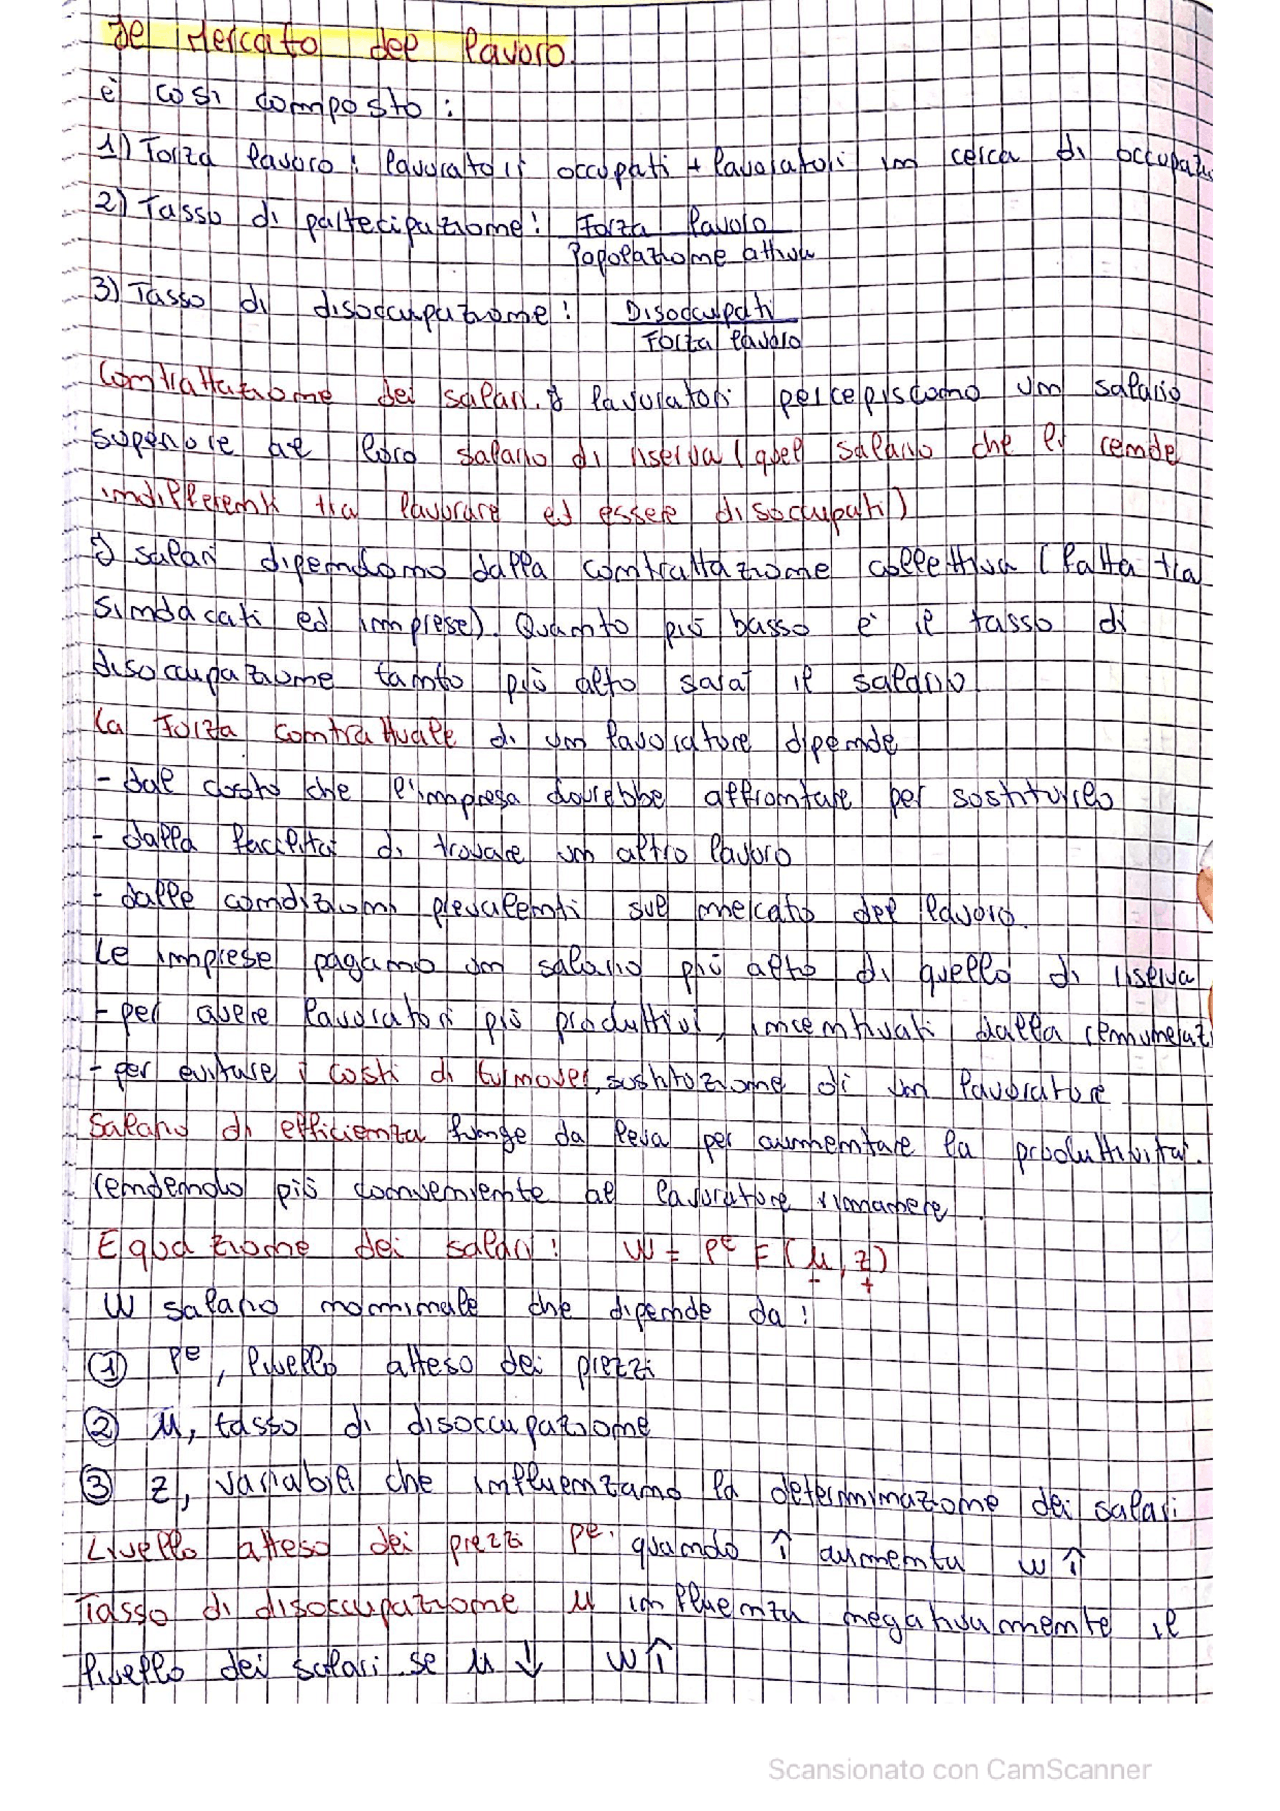 Il Mercato del lavoro.
è così composto:
1) Forza lavoro: lavoratori occupati + lavoratori in cerca di occupaz
2) Tasso di partecipazione: Forza lavoro
Popolazione attiva
3) Tasso di disoccupazione: Disoccupati
Forza lavoro
Contrattazione dei salari. I lavoratori percepiscono un salario
superiore al loro salario di riserva (quel salario che li rende
indifferenti tra lavorare ed essere disoccupati)
I salari dipendono dalla contrattazione collettiva (fatta tra
sindacati ed imprese). Quanto più basso è il tasso di
disoccupazione tanto più alto sarà il salario
La forza contrattuale di un lavoratore dipende
- dal costo che l'impresa dovrebbe affrontare per sostituirlo
- dalla facilità di trovare un altro lavoro
- dalle condizioni prevalenti sul mercato del lavoro.
Le imprese pagano un salario più alto di quello di riserva
- per avere lavoratori più produttivi, incentivati dalla remuneraz
- per evitare i costi di turnover, sostituzione di un lavoratore
Salario di efficienza funge da leva per aumentare la produttività.
rendendo più conveniente al lavoratore rimanere.
Equazione dei salari: W = Pᵉ F(μ, z)
- +
W salario nominale che dipende da:
① Pᵉ, livello atteso dei prezzi
② μ, tasso di disoccupazione
③ z, variabili che influenzano la determinazione dei salari
Livello atteso dei prezzi Pᵉ: quando ↑ aumenta W↑
Tasso di disoccupazione μ influenza negativamente il
livello dei salari se μ ↓ W↑
Scansionato con CamScanner